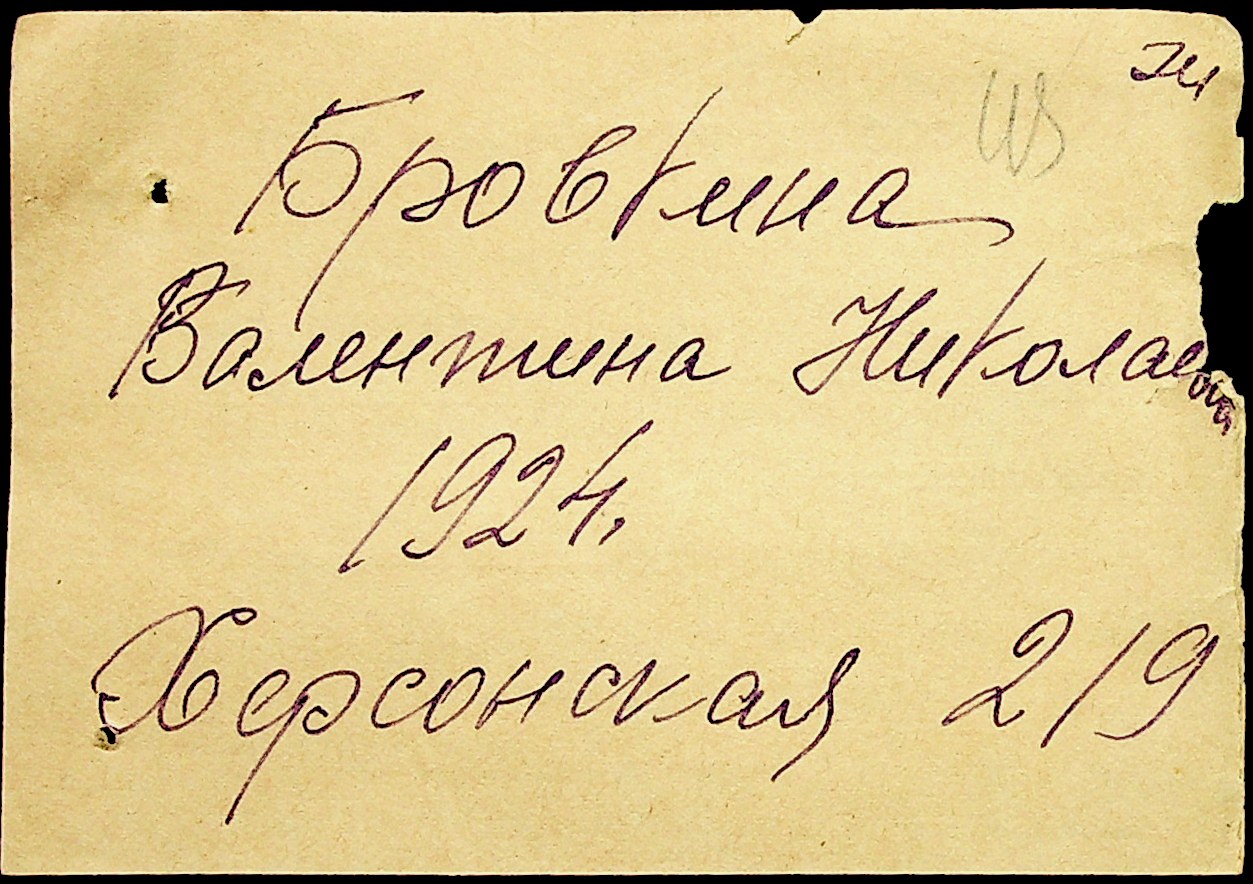 Бровкина
Валентина Николаевна
1924.
Херсонская 2/9